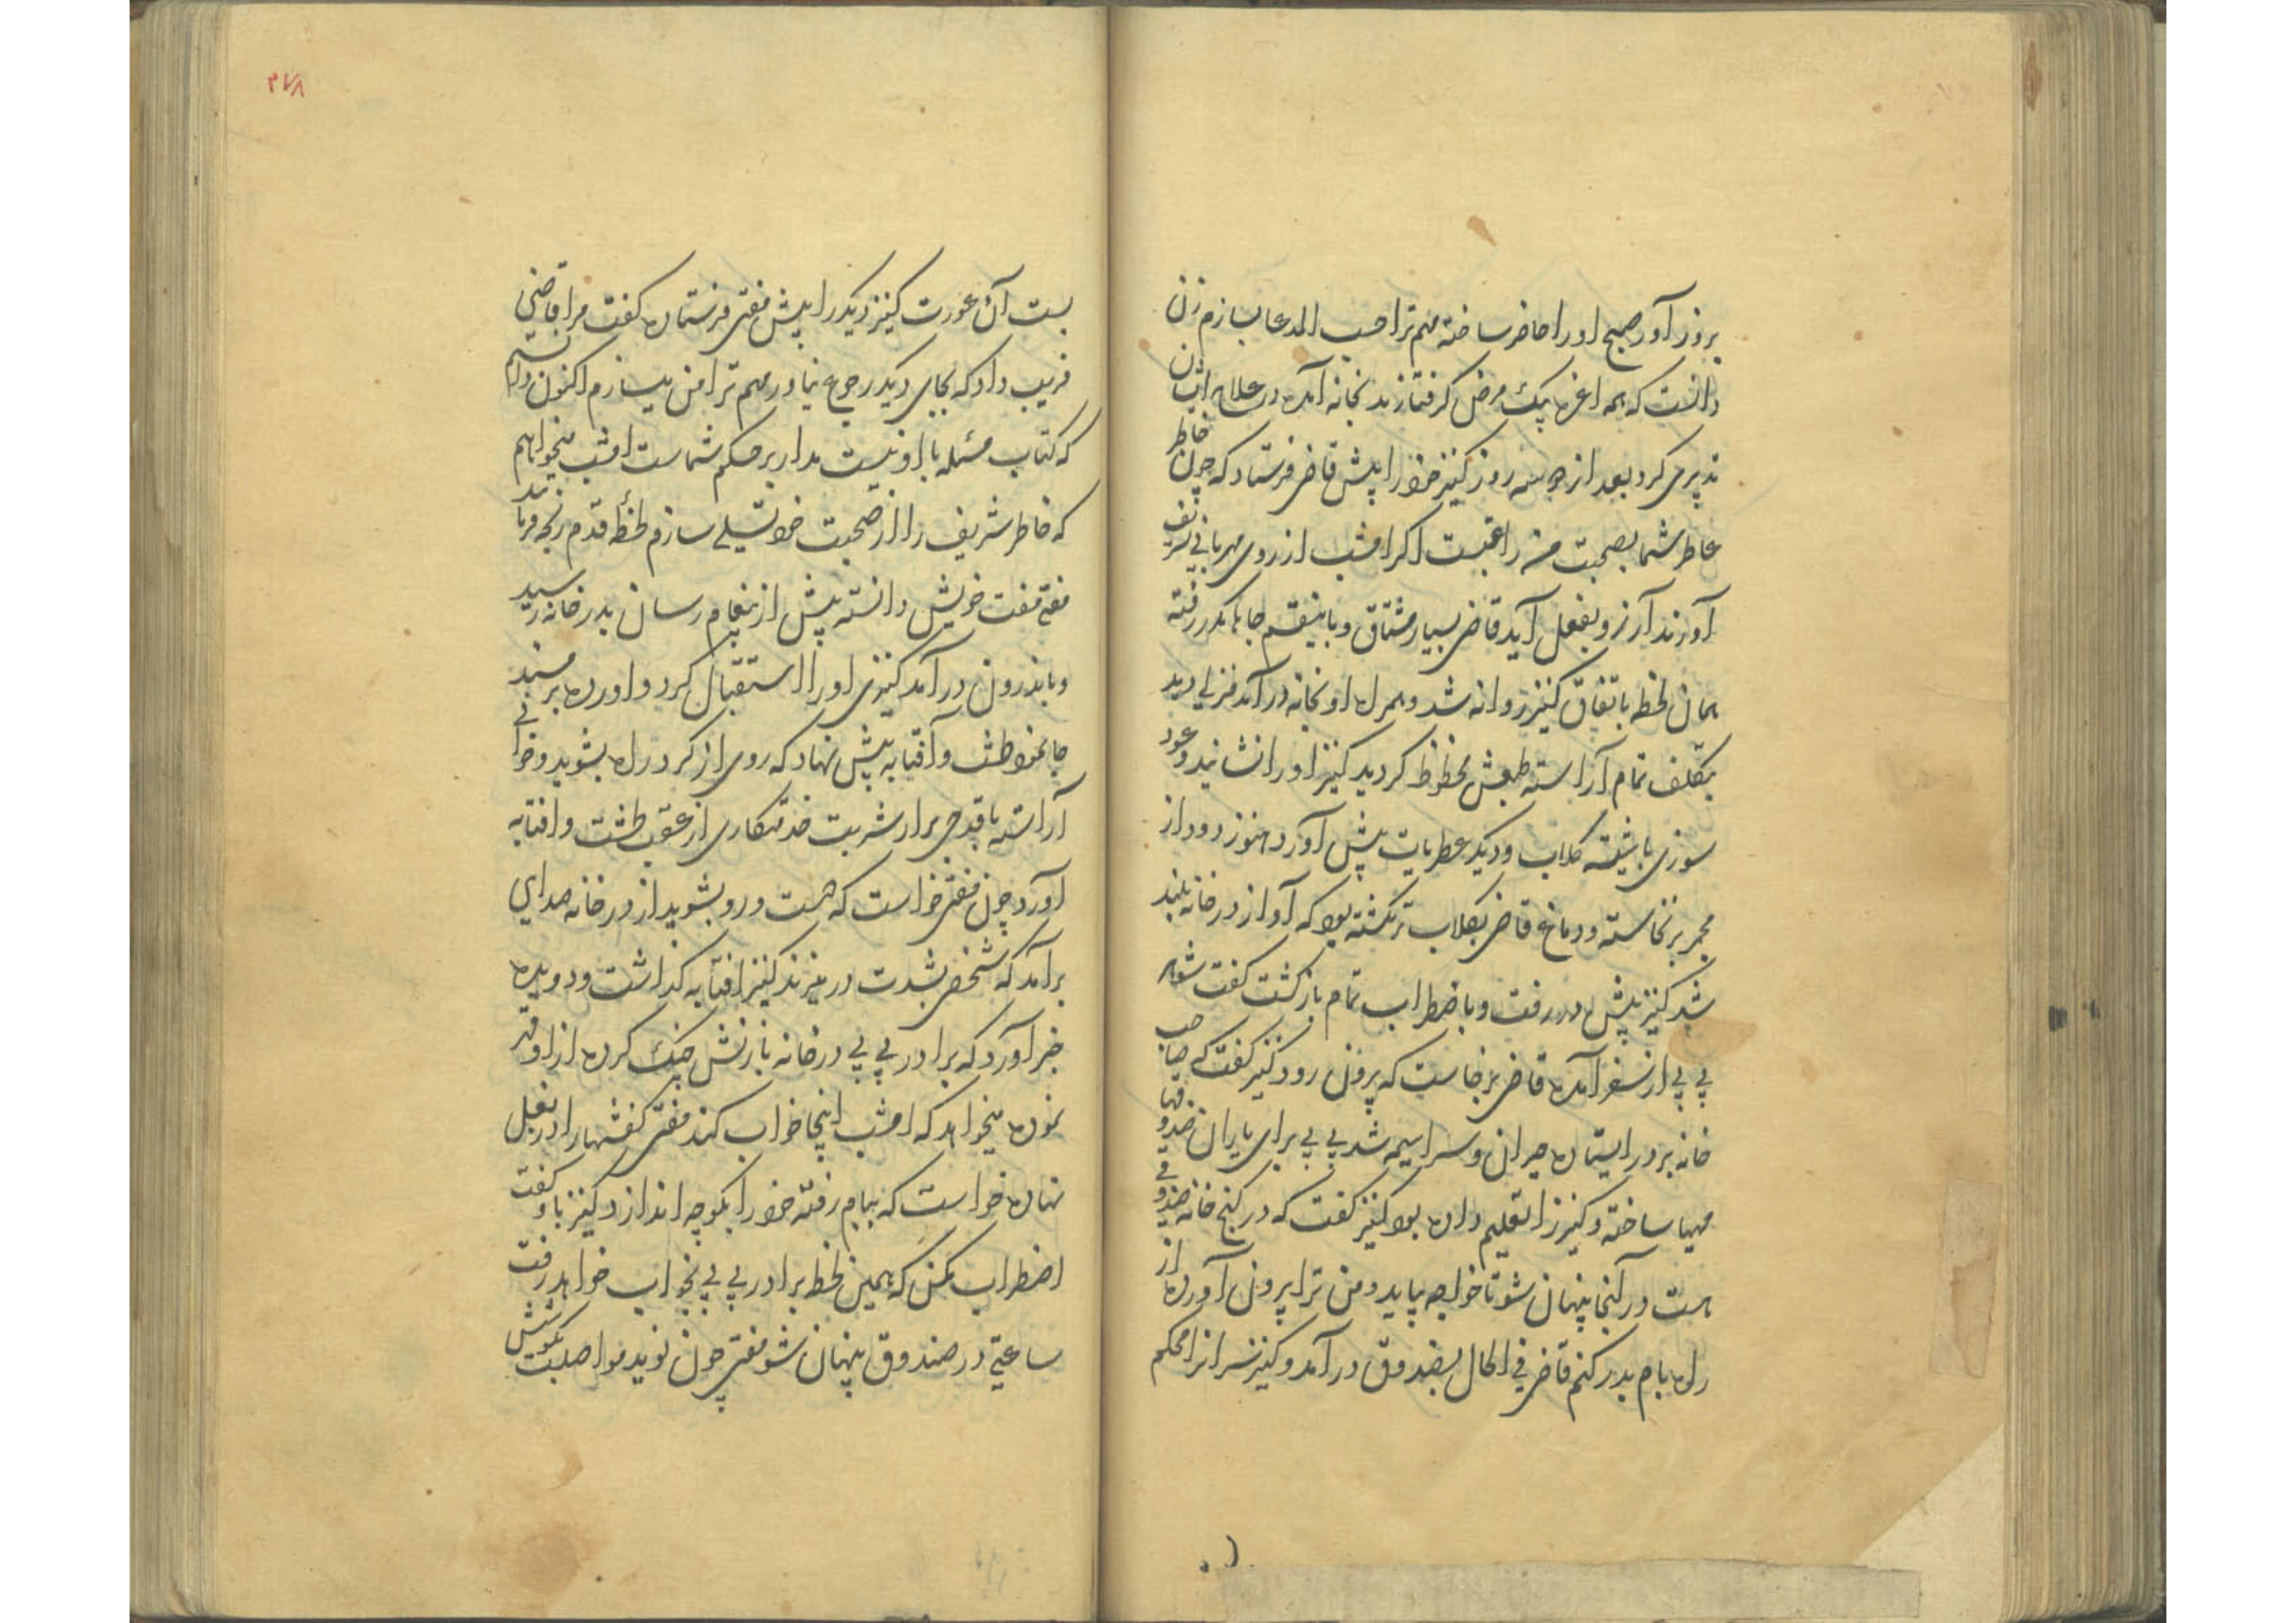 بروز آور صبح او را حاضر ساخته مهم ترا حسب المدعا بسازم زن
دانست که همه اعزه بیک مرض گرفتارند بخانه آمده در علاج ایشان
تدبیری کرد بعد از دو سه روز کنیز خود را پیش قاضی فرستاد که چون خاطر
عاطر شما بصحبت من راغبست اگر امشب از روی مهربانی تشریف
آورند آرزو بفعل آید قاضی بسیار مشتاق و باینقسم جاها مکرر رفته
همان لحظه باتفاق کنیز روانه شد و همراه او بخانه درآمد منزلی دید
بتکلف تمام آراسته طبعش محظوظ گردید کنیز او را نشانید و عود
سوزی با شیشه گلاب و دیگر عطریات پیش آورد هنوز دود از
مجمر برنخاسته و دماغ قاضی بگلاب تر نگشته بود که آواز در خانه بلند
شد کنیز پیش در رفت و باضطراب تمام بازگشت گفت شوهر
بی بی از سفر آمده قاضی برخاست که بیرون رود کنیز گفت که صاحب
خانه بر در ایستاده حیران و سراسیمه شد بی بی برای یاران صندوقها
مهیا ساخته و کنیز را تعلیم داده بود کنیز گفت که در کنج خانه صندوقی
هست در آنجا پنهان شو تا خواجه بیاید و من ترا بیرون آورده از
راه بام بدر کنم قاضی فی الحال بصندوق درآمد و کنیز سر انرا محکم
۲۷۸
بست آن عورت کنیز دیگر را پیش مفتی فرستاده گفت مرا قاضی
فریب داد که بجای دیگر رجوع نیاور مهم ترا من میسازم اکنون دانستم
که کتاب مسئله با او نیست مدار بر حکم شماست امشب میخواهم
که خاطر شریف را از صحبت خود تسلی سازم لحظه قدم رنجه فرمایند
مفتی مفت خویش دانسته پیش از پیغام رسان بدر خانه رسید
و باندرون درآمد کنیزی او را استقبال کرد و آورده بر مسند
جا نمود طشت و آفتابه پیش نهاد که روی از گرد راه بشوید و خوانی
آراسته با قدحی پر از شربت خدمتکاری از عقب طشت و افتابه
آورد چون مفتی خواست که دست و رو بشوید از در خانه صدایی
برآمد که شخصی بشدت در میزند کنیز افتابه گذاشت و دویده
خبر آورد که برادر بی بی در خانه با زنش جنگ کرده از او قهر
نموده میخواهد که امشب اینجا خواب کند مفتی کفشها را در بغل
نهاده خواست که ببام رفته خود را بکوچه اندازد کنیز باو گفت
اضطراب مکن که همین لحظه برادر بی بی بخواب خواهد رفت
ساعتی در صندوق پنهان شو مفتی چون نوید مواصلت بگوشش